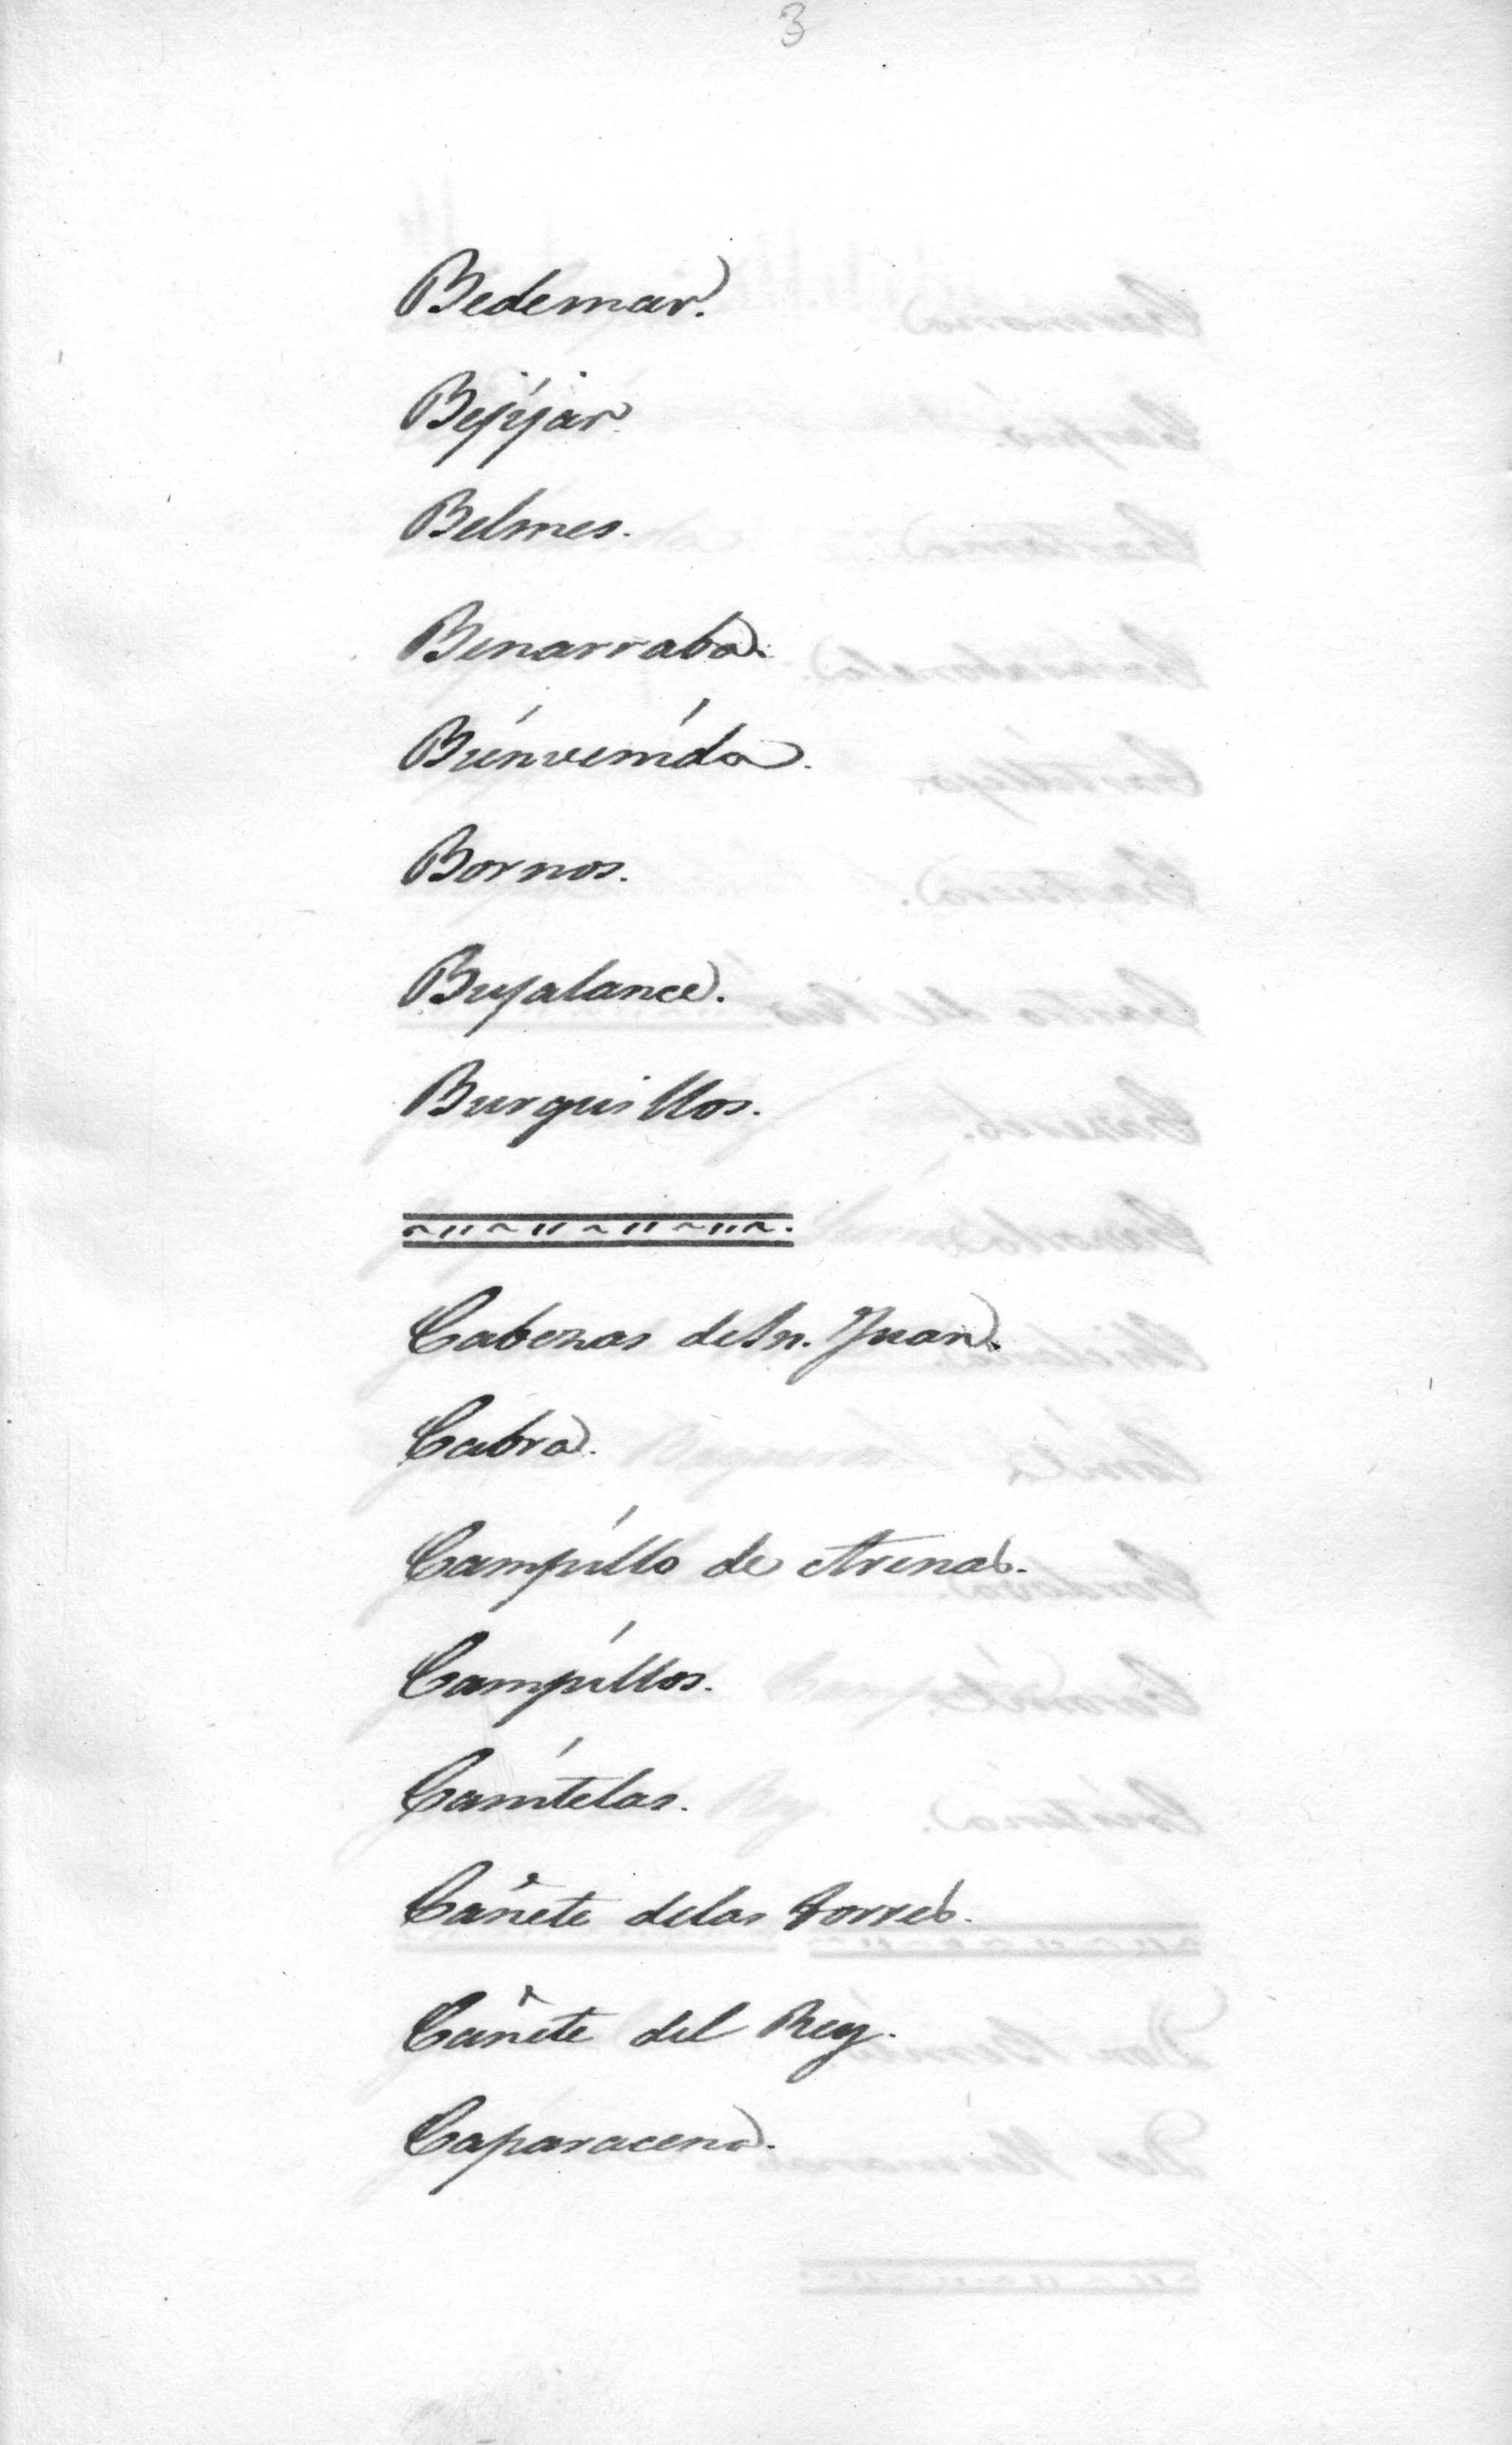 3
Bedemar.
Bejíjar
Belmes.
Benarraba.
Biénvenída.
Bornos.
Bujalance.
Burguillos.
Cabezas de Sn. Juan.
Cabra.
Campíllo de Arenas.
Campíllos.
Canítelas.
Cañete delas torres.
Cañete del Rey.
Caparacena.